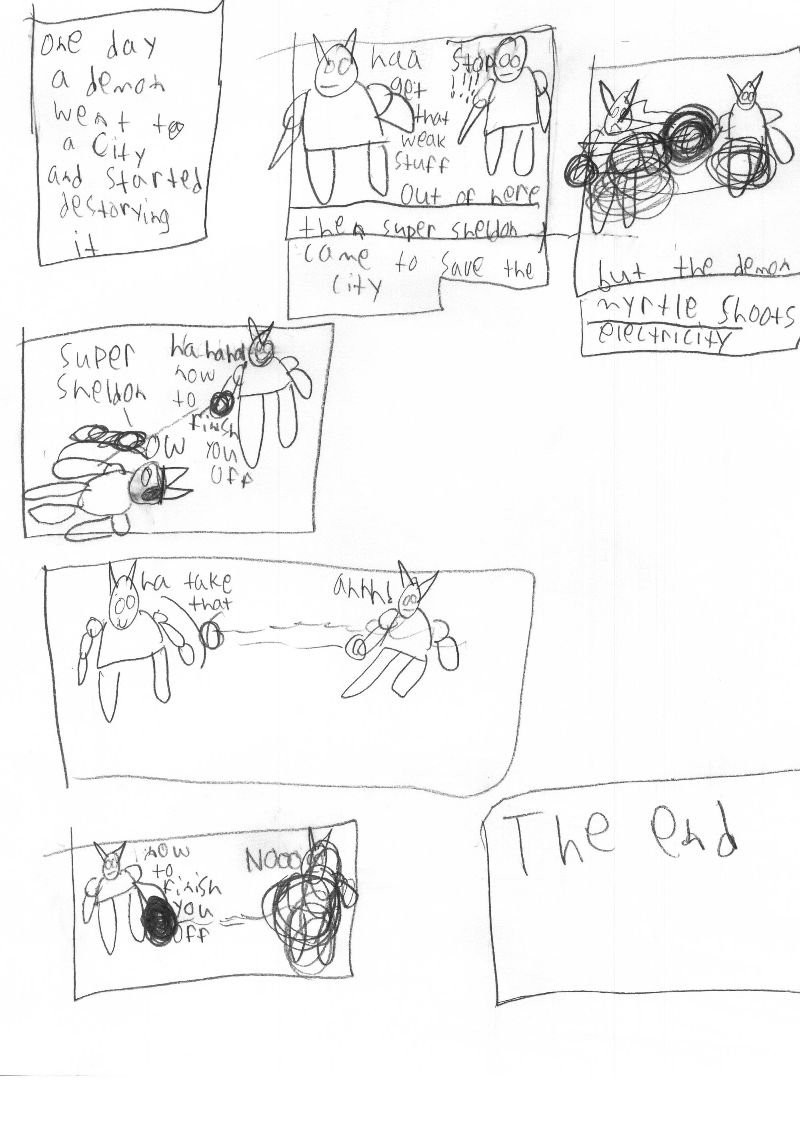 one day
a demon
went to
a City
and started
destorying
it
haa
get
that
weak
stuff
out of here
Stop
!!!
then super sheldon
came to save the
city
but the demon
myrtle shoots
electricity
super
sheldon
hahaha
now
to
finish
you
off
ow
ha take
that
ahhh!
now
to
finish
you
off
Nooo
The end